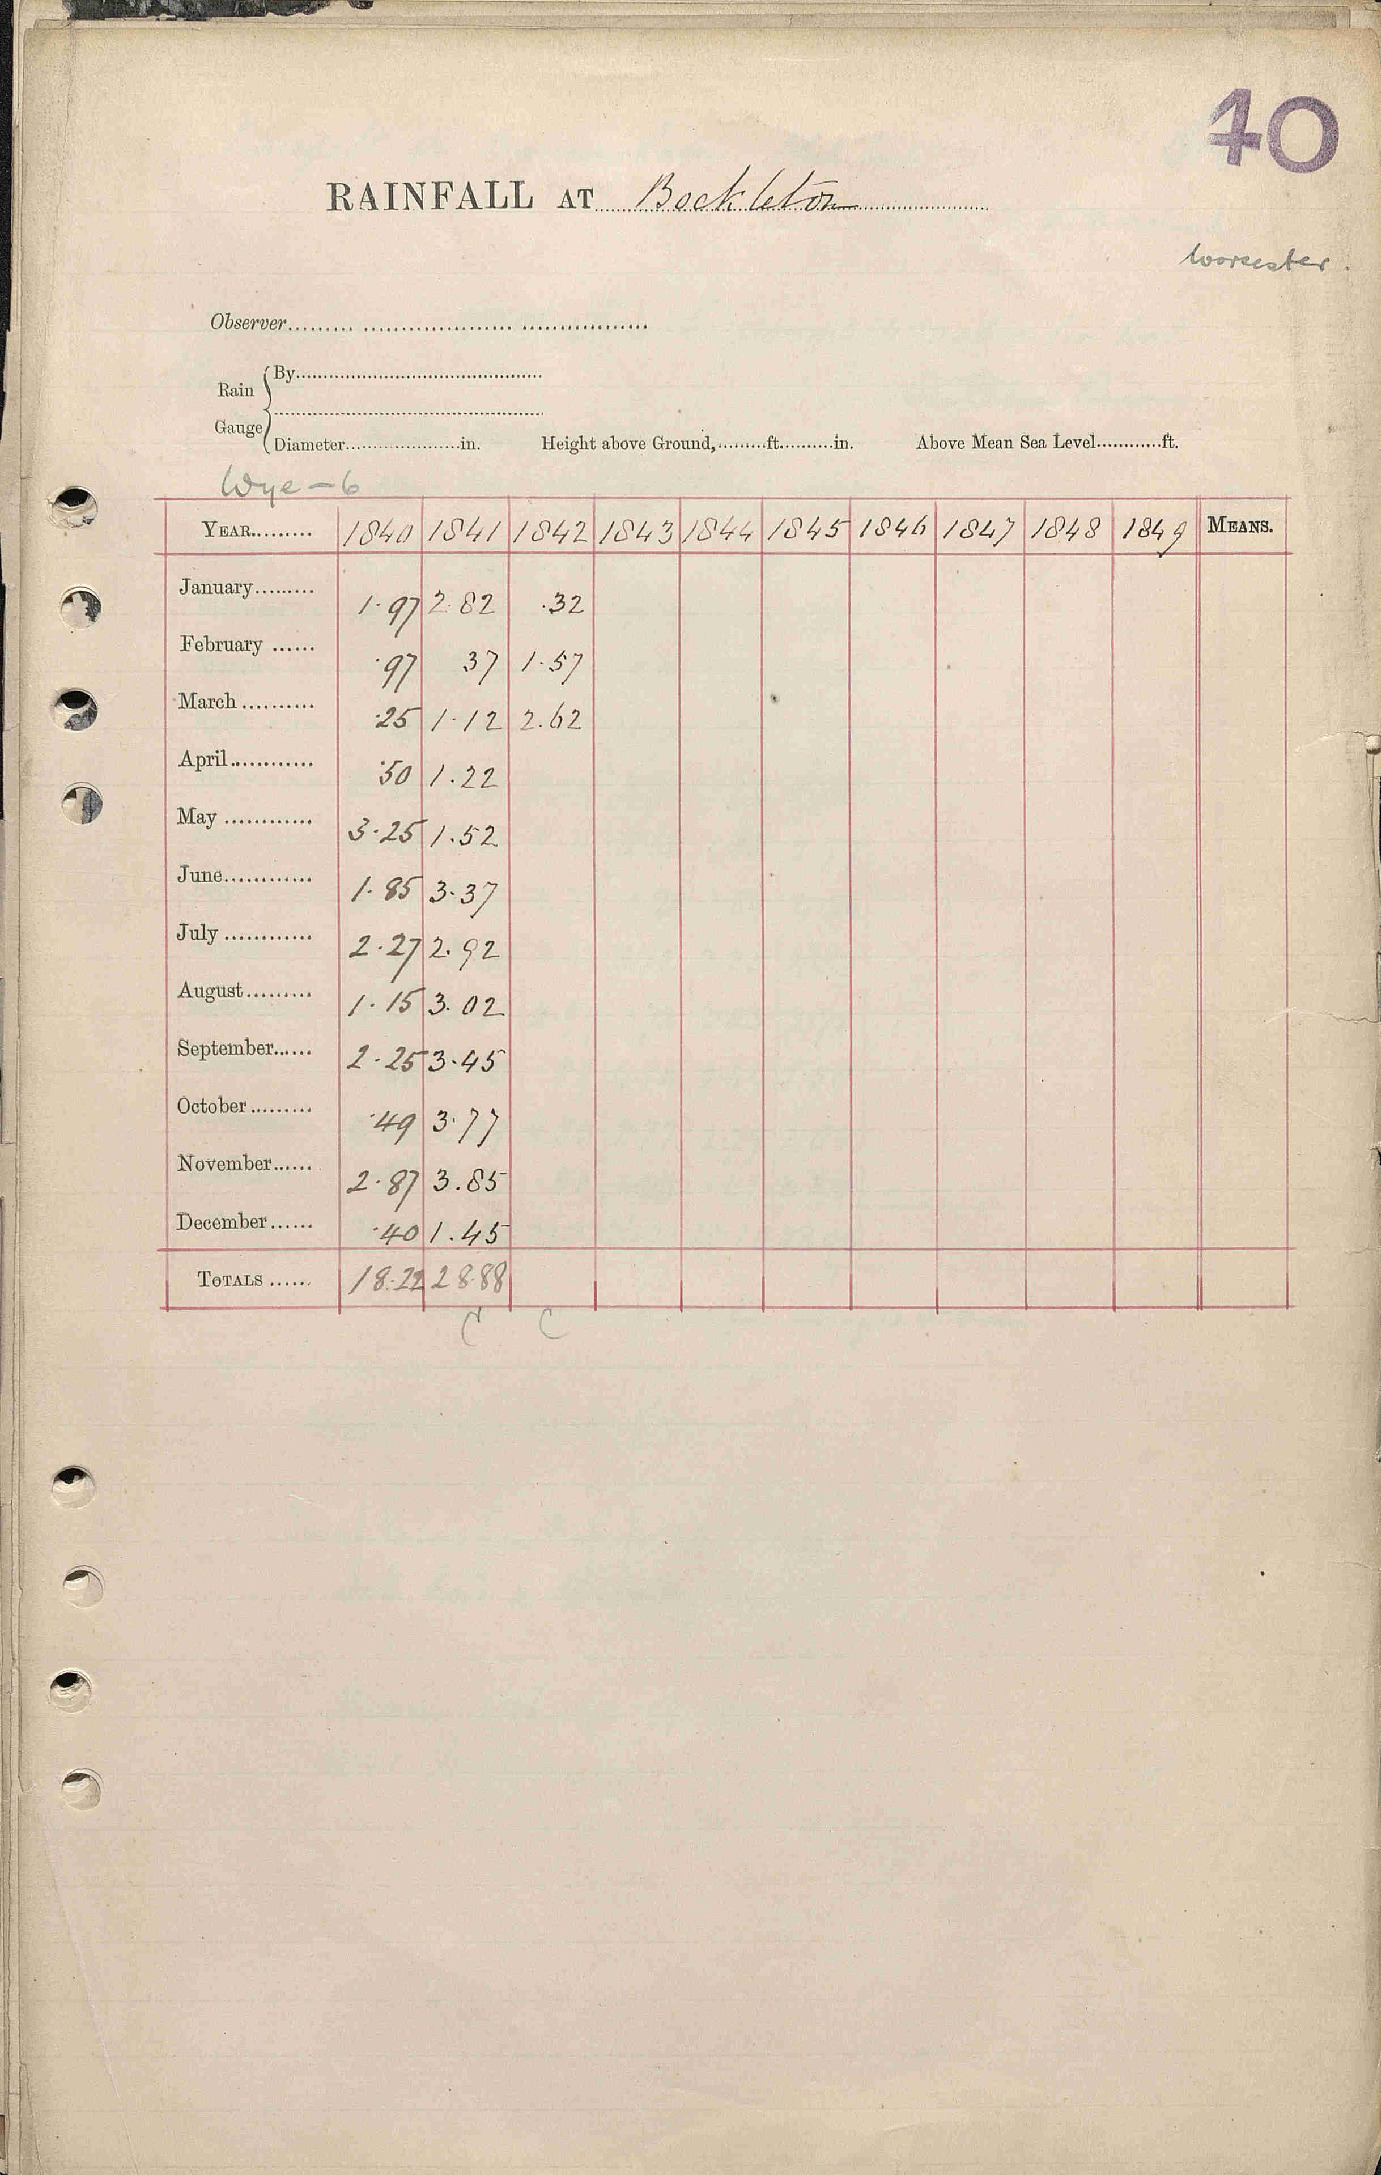 40
RAINFALL AT Bockleton
Worcester.
Observer
Rain Gauge { By
Diameter in. Height above Ground, ft. in. Above Mean Sea Level ft.
Wye - 6
YEAR 1840 1841 1842 1843 1844 1845 1846 1847 1848 1849 MEANS.
January 1.97 2.82 .32
February .97 37 1.57
March .25 1.12 2.62
April .50 1.22
May 3.25 1.52
June 1.85 3.37
July 2.27 2.92
August 1.15 3.02
September 2.25 3.45
October .49 3.77
November 2.87 3.85
December .40 1.45
TOTALS 18.22 28.88
C C